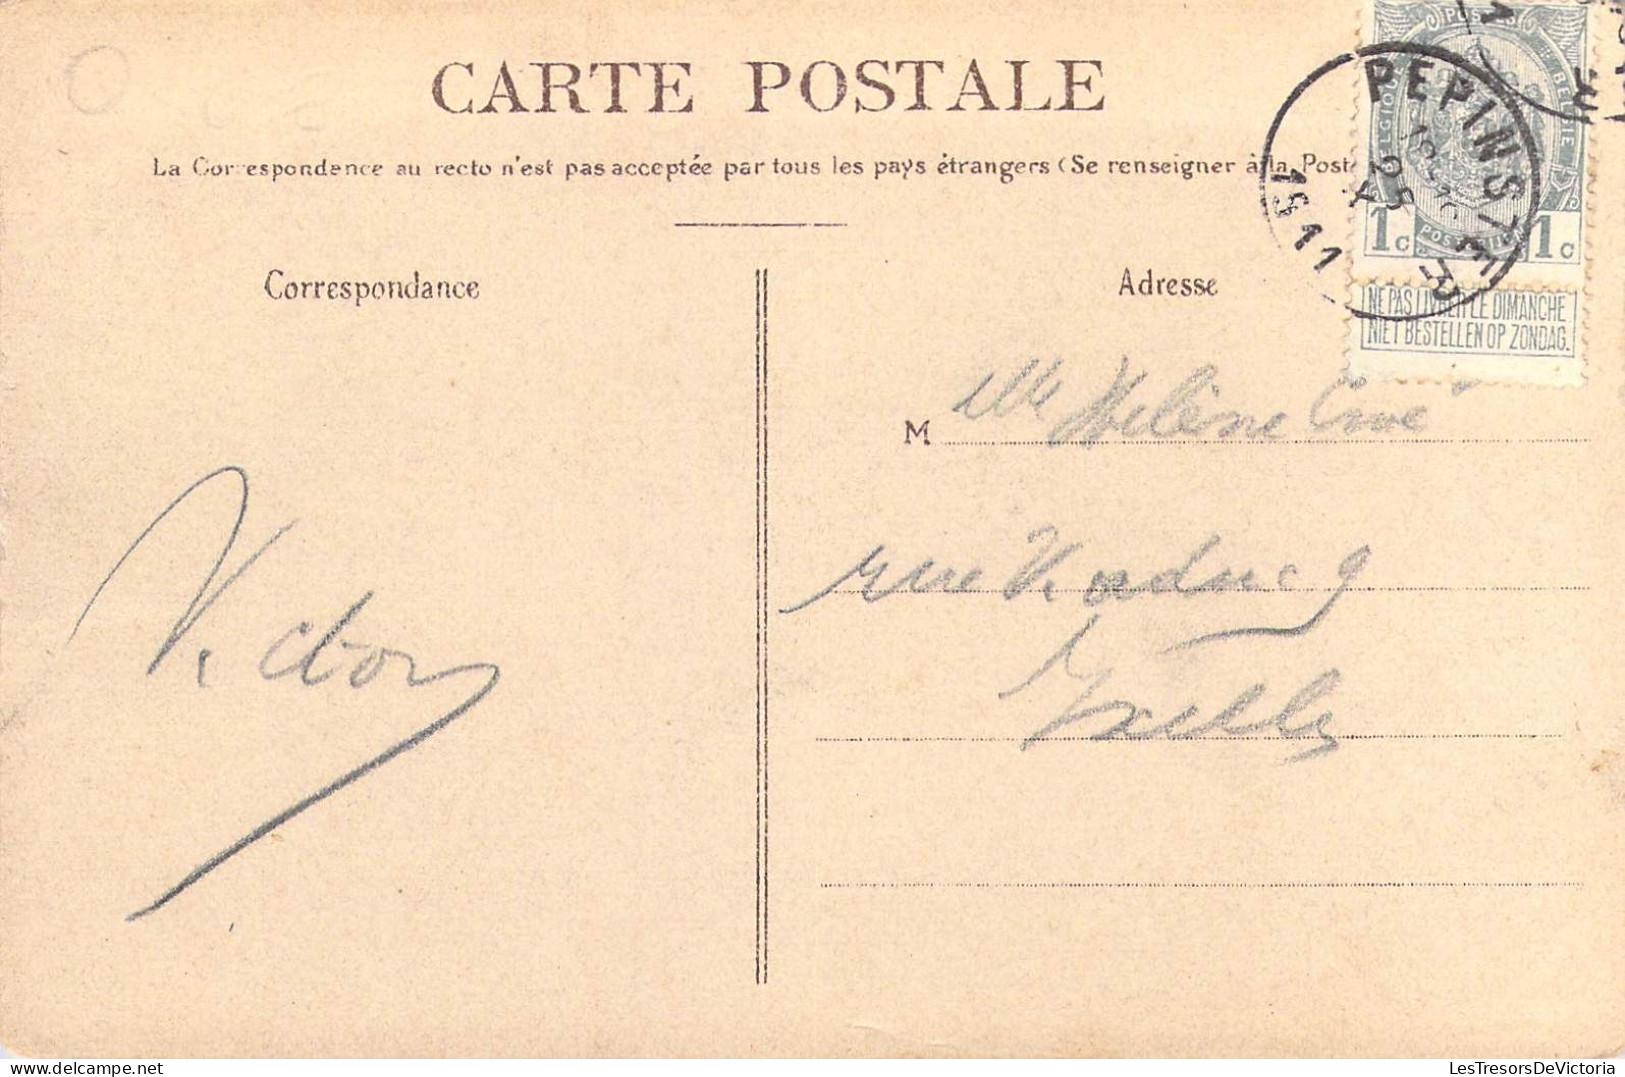 CARTE POSTALE
La Correspondance au recto n'est pas acceptée par tous les pays étrangers (Se renseigner à la Post
Correspondance
Adresse
POSTES
BELGIQUE
BELGIE
1c
POSTERIJEN
1c
NE PAS LIVRER LE DIMANCHE
NIET BESTELLEN OP ZONDAG.
PEPINSTER
25
1911
M elle Hélène
rue Viaduc 9
Ixelles
Victor
LesTresorsDeVictoria